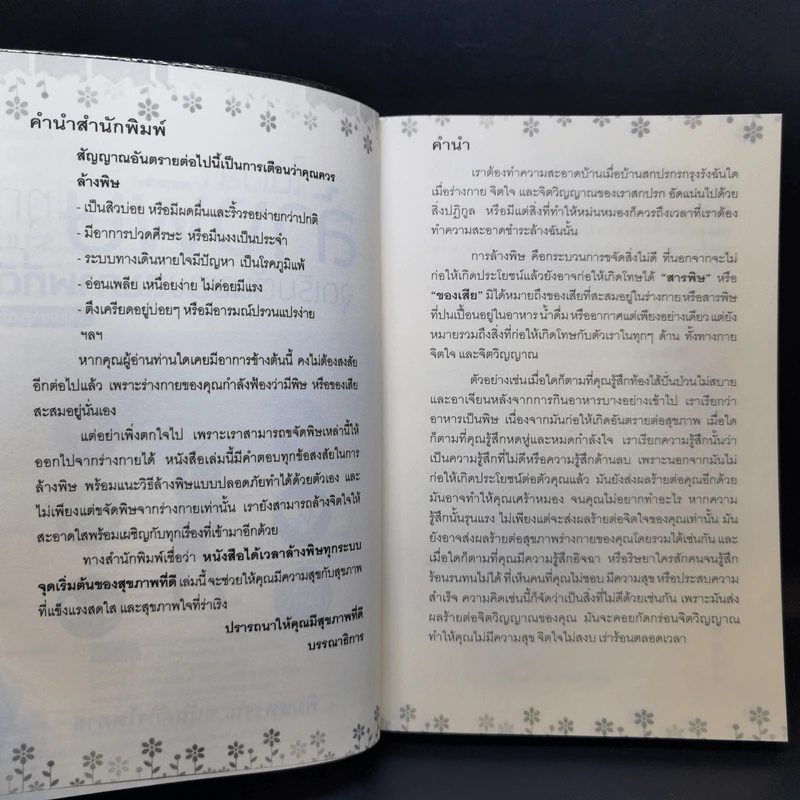 คำนำสำนักพิมพ์
สัญญาณอันตรายต่อไปนี้เป็นการเตือนว่าคุณควร
ล้างพิษ
- เป็นสิวบ่อย หรือมีผดผื่นและริ้วรอยง่ายกว่าปกติ
- มีอาการปวดศีรษะ หรือมึนงงเป็นประจำ
- ระบบทางเดินหายใจมีปัญหา เป็นโรคภูมิแพ้
- อ่อนเพลีย เหนื่อยง่าย ไม่ค่อยมีแรง
- ตึงเครียดอยู่บ่อยๆ หรือมีอารมณ์ปรวนแปรง่าย
ฯลฯ
หากคุณผู้อ่านท่านใดเคยมีอาการข้างต้นนี้ คงไม่ต้องสงสัย
อีกต่อไปแล้ว เพราะร่างกายของคุณกำลังฟ้องว่ามีพิษ หรือของเสีย
สะสมอยู่นั่นเอง
แต่อย่าเพิ่งตกใจไป เพราะเราสามารถขจัดพิษเหล่านี้ให้
ออกไปจากร่างกายได้ หนังสือเล่มนี้มีคำตอบทุกข้อสงสัยในการ
ล้างพิษ พร้อมแนะวิธีล้างพิษแบบปลอดภัยทำได้ด้วยตัวเอง และ
ไม่เพียงแต่ขจัดพิษจากร่างกายเท่านั้น เรายังสามารถล้างจิตใจให้
สะอาดใสพร้อมเผชิญกับทุกเรื่องที่เข้ามาอีกด้วย
ทางสำนักพิมพ์เชื่อว่า หนังสือได้เวลาล้างพิษทุกระบบ
จุดเริ่มต้นของสุขภาพที่ดี เล่มนี้จะช่วยให้คุณมีความสุขกับสุขภาพ
ที่แข็งแรงสดใส และสุขภาพใจที่ร่าเริง
ปรารถนาให้คุณมีสุขภาพที่ดี
บรรณาธิการ
คำนำ
เราต้องทำความสะอาดบ้านเมื่อบ้านสกปรกรกรุงรังฉันใด
เมื่อร่างกาย จิตใจ และจิตวิญญาณของเราสกปรก อัดแน่นไปด้วย
สิ่งปฏิกูล หรือมีแต่สิ่งที่ทำให้หม่นหมองก็ควรถึงเวลาที่เราต้อง
ทำความสะอาดชำระล้างฉันนั้น
การล้างพิษ คือกระบวนการขจัดสิ่งไม่ดี ที่นอกจากจะไม่
ก่อให้เกิดประโยชน์แล้วยังอาจก่อให้เกิดโทษได้ “สารพิษ” หรือ
“ของเสีย” มิได้หมายถึงของเสียที่สะสมอยู่ในร่างกาย หรือสารพิษ
ที่ปนเปื้อนอยู่ในอาหาร น้ำดื่ม หรืออากาศแต่เพียงอย่างเดียว แต่ยัง
หมายรวมถึงสิ่งที่ก่อให้เกิดโทษกับตัวเราในทุกๆ ด้าน ทั้งทางกาย
จิตใจ และจิตวิญญาณ
ตัวอย่างเช่นเมื่อใดก็ตามที่คุณรู้สึกท้องไส้ปั่นป่วนไม่สบาย
และอาเจียนหลังจากการกินอาหารบางอย่างเข้าไป เราเรียกว่า
อาหารเป็นพิษ เนื่องจากมันก่อให้เกิดอันตรายต่อสุขภาพ เมื่อใด
ก็ตามที่คุณรู้สึกหดหู่และหมดกำลังใจ เราเรียกความรู้สึกนั้นว่า
เป็นความรู้สึกที่ไม่ดีหรือความรู้สึกด้านลบ เพราะนอกจากมันไม่
ก่อให้เกิดประโยชน์ต่อตัวคุณแล้ว มันยังส่งผลร้ายต่อคุณอีกด้วย
มันอาจทำให้คุณเศร้าหมอง จนคุณไม่อยากทำอะไร หากความ
รู้สึกนั้นรุนแรง ไม่เพียงแต่จะส่งผลร้ายต่อจิตใจของคุณเท่านั้น มัน
ยังอาจส่งผลร้ายต่อสุขภาพร่างกายของคุณโดยรวมได้เช่นกัน และ
เมื่อใดก็ตามที่คุณมีความรู้สึกอิจฉา หรือริษยาใครสักคนจนรู้สึก
ร้อนรนทนไม่ได้ ที่เห็นคนที่คุณไม่ชอบ มีความสุข หรือประสบความ
สำเร็จ ความคิดเช่นนี้ก็จัดว่าเป็นสิ่งที่ไม่ดีด้วยเช่นกัน เพราะมันส่ง
ผลร้ายต่อจิตวิญญาณของคุณ มันจะคอยกัดกร่อนจิตวิญญาณ
ทำให้คุณไม่มีความสุข จิตใจไม่สงบ เร่าร้อนตลอดเวลา